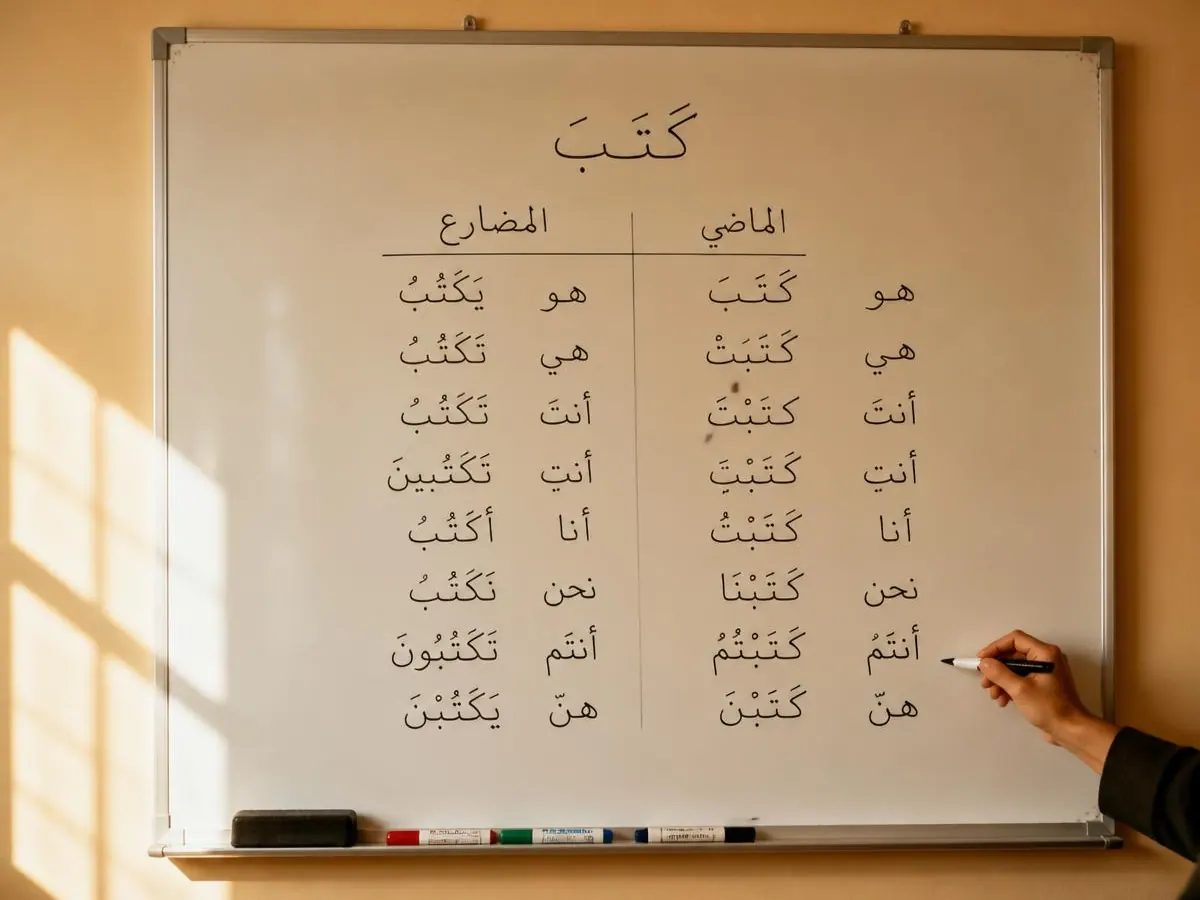 كَتَبَ
الماضي المضارع
هو كَتَبَ هو يَكَتُبُ
هي كَتَبَتْ هي تَكَتُبُ
أنتَ كتَبْتَ أنتَ تَكَتُبُ
أنتِ كَتَبْتَِ أنتِ تَكَتُبينَ
أنا كَتَبْتُ أنا أكَتُبُ
نحن كَتَبْنَا نحن نَكَتُبُ
أنتَمُ كَتَبْتُمُ أنتَم تَكَتُبُونَ
هنّ كَتَبْنَ هنّ يَكَتُبْنَ